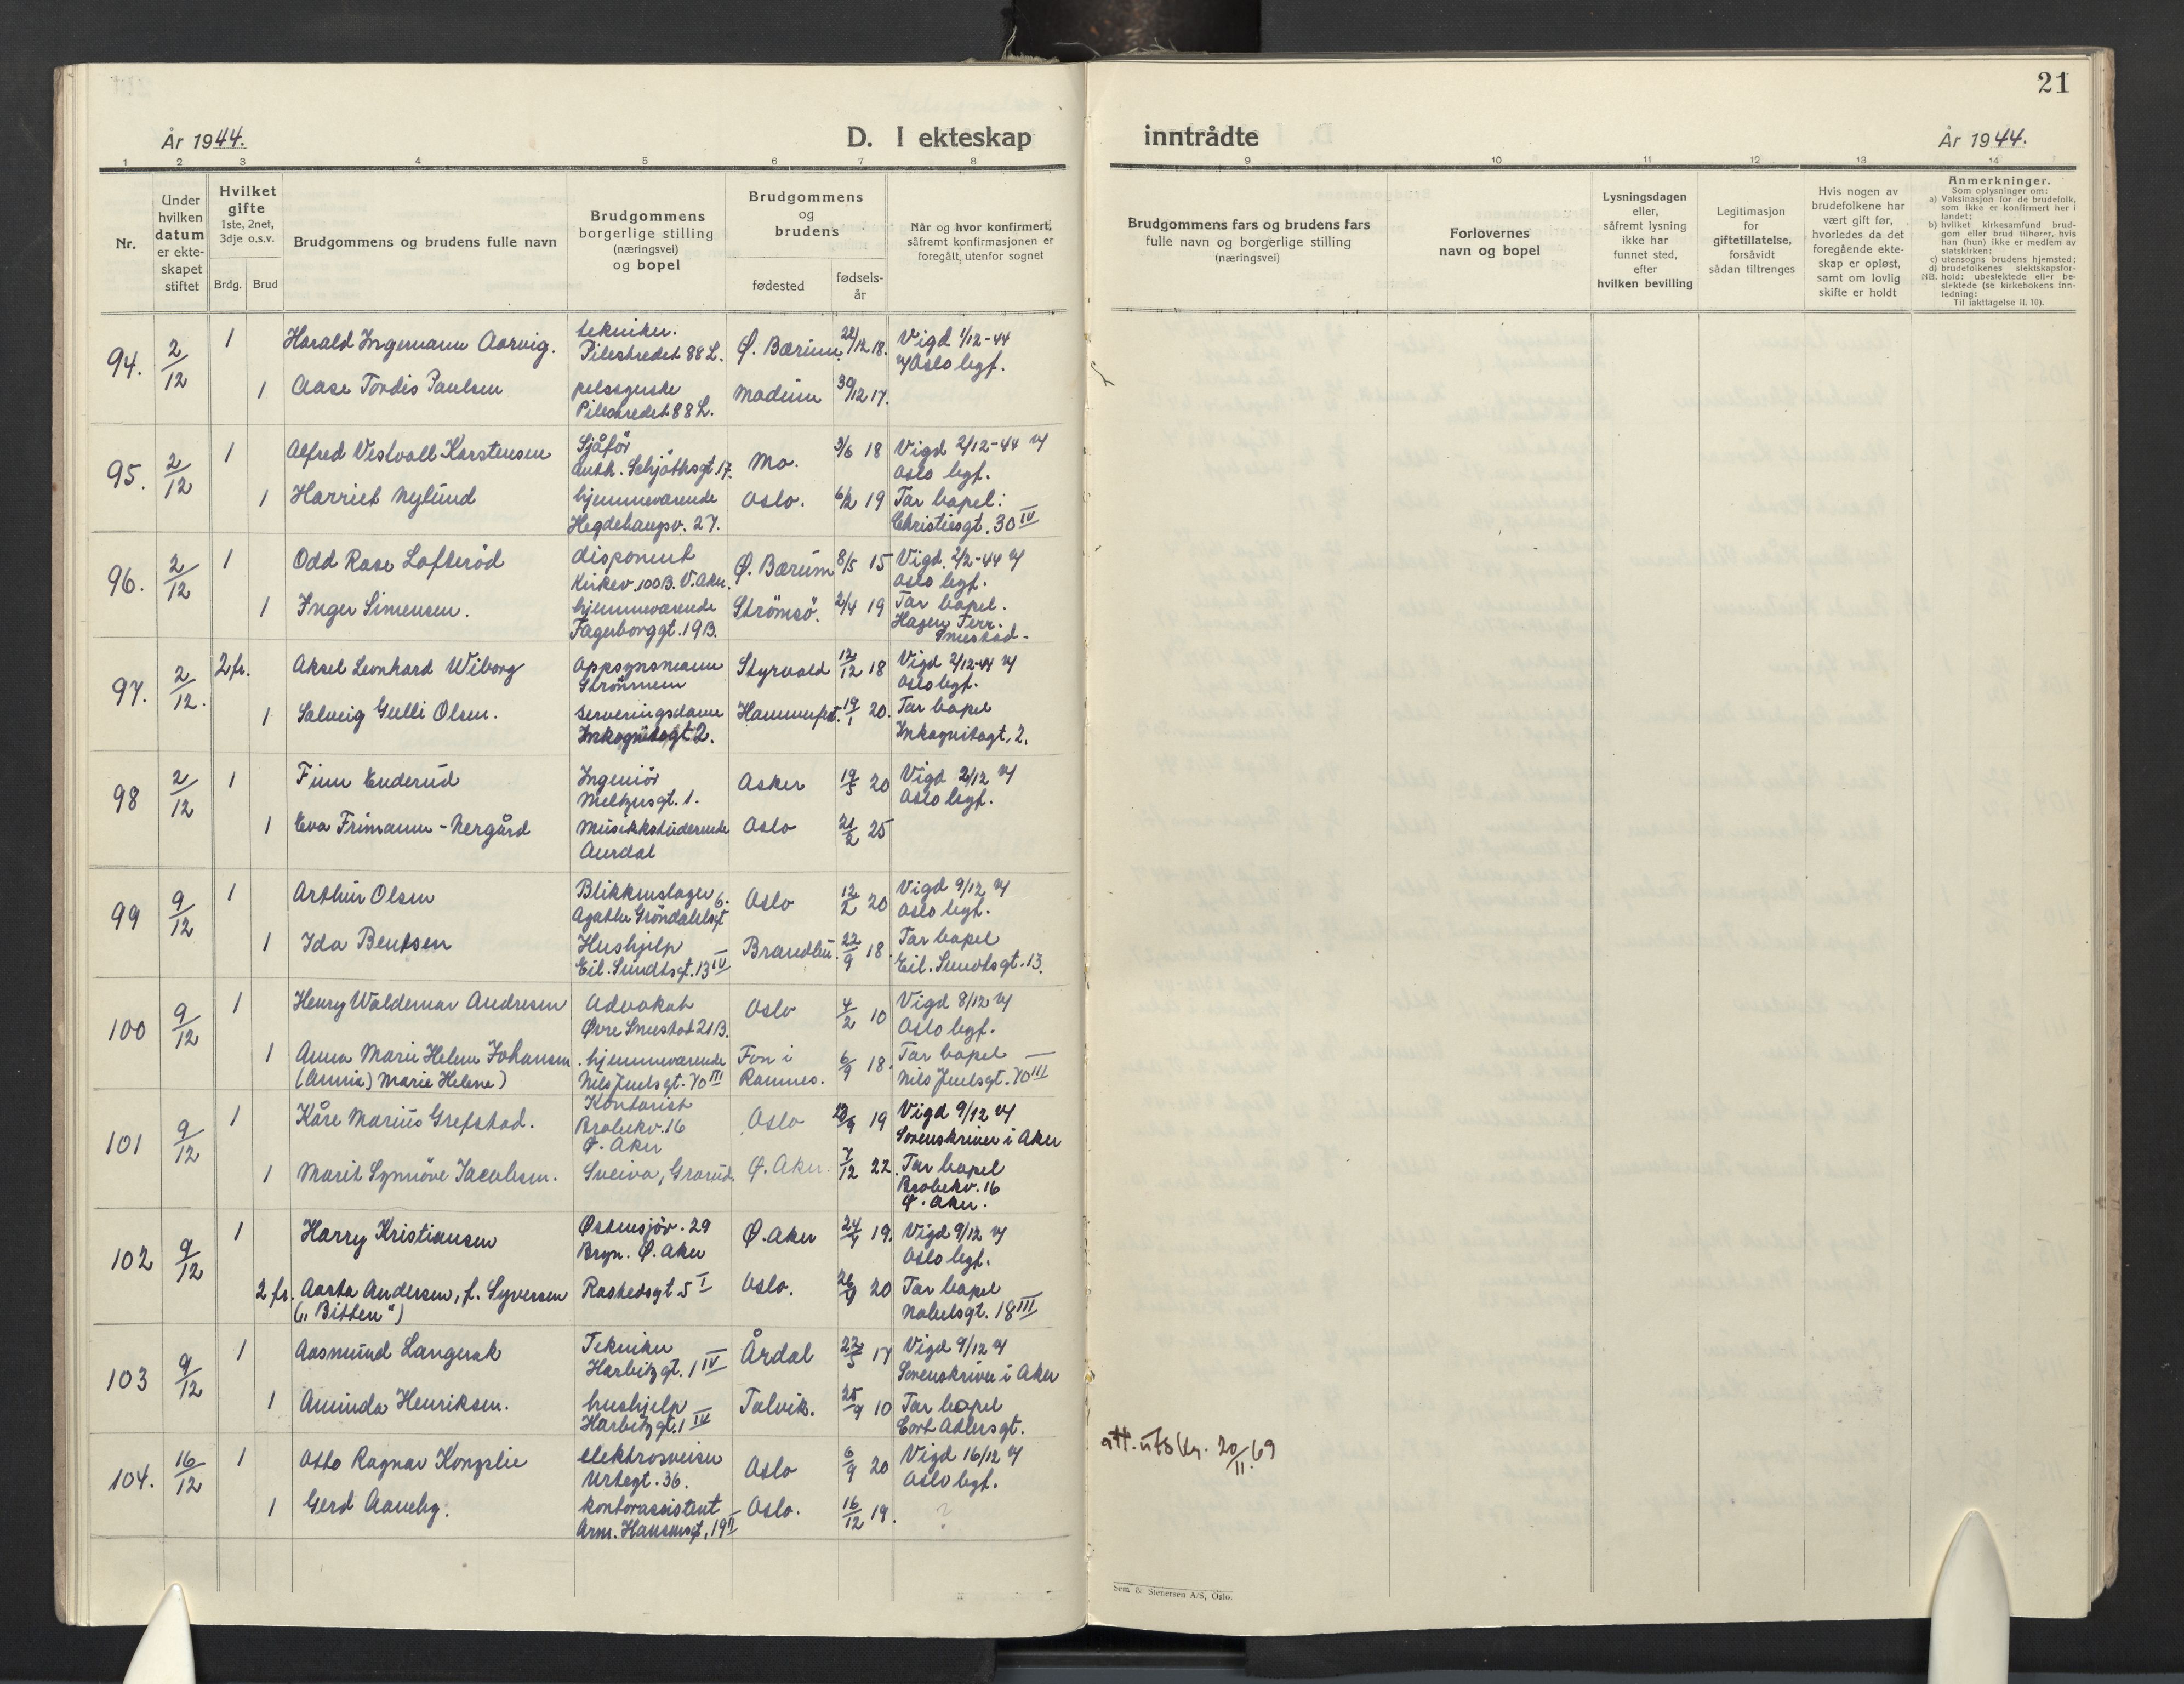 21
År 1944.
D. I ekteskap
inntrådte
År 1944.
1 2 3 4 5 6 7 8 9 10 11 12 13 14
Nr.
Under hvilken datum er ekte-skapet stiftet
Hvilket gifte
1ste, 2net, 3dje o.s.v.
Brdg. Brud
Brudgommens og brudens fulle navn
Brudgommens borgerlige stilling
(næringsvei)
og bopel
Brudgommens og brudens
fødested
fødsels-år
Når og hvor konfirmert,
såfremt konfirmasjonen er
foregått utenfor sognet
Brudgommens fars og brudens fars
fulle navn og borgerlige stilling
(næringsvei)
Forlovernes
navn og bopel
Lysningsdagen
eller,
såfremt lysning
ikke har
funnet sted,
efter
hvilken bevilling
Legitimasjon
for
giftetillatelse,
forsåvidt
sådan tiltrenges
Hvis nogen av
brudefolkene har
vært gift før,
hvorledes da det
foregående ekte-
skap er opløst,
samt om lovlig
skifte er holdt
Anmerkninger.
Som oplysninger om:
a) Vaksinasjon for de brudefolk,
som ikke er konfirmert her i
landet;
b) hvilket kirkesamfund brud-
gom eller brud tilhører, hvis
han (hun) ikke er medlem av
statskirken;
c) utensogns brudens hjemsted;
d) brudefolkenes slektskapsfor-
NB. hold: ubeslektede eller be-
slektede (se kirkebokens inn-
ledning:
Til iakttagelse II. 10).
94. 2/12 1 Harald Ingemann Aarvig. tekniker. Ø. Bærum 22/12 18. Vigd 1/12-44
Pilestredet 88 L. v/ Oslo byf.
1 Aase Tordis Paulsen pelssyerske Modum 30/12 17.
Pilestredet 88 L.
95. 2/12 1 Alfred Vestvoll Karstensen Sjåfør Mo. 3/6 18 Vigd 2/12-44 v/
Anth. Schjøthsgt. 17. Oslo byf.
1 Harriet Nylund hjemmeværende Oslo. 6/2 19 Tar bopel:
Hegdehaugsv. 27. Christiesgt. 30 IV
96. 2/12 1 Odd Rase Lofterød disponent Ø. Bærum 8/5 15 Vigd. 2/2-44 v/
Kirkev. 100B. V. Aker. Oslo byf.
1 Inger Simensen. hjemmeværende Strömsö. 2/4 19 Tar bopel.
Fagerborggt. 19B. Hagen Terr.
Smestad.
97. 2/12. 2 fr. Aksel Leonhard Wiborg oppsynsmann Styrvold 12/12 18 Vigd 2/12-44 v/
Strömmen Oslo byf.
1 Solveig Gulli Olsen. serveringsdame Hammerfest. 19/1 20. Tar bopel
Inkognitogt 2. Inkognitogt. 2.
98 2/12 1 Finn Enderud Ingeniör Asker 19/5 20 Vigd 2/12 v/
Melhusgt. 1. Oslo byf.
1 Eva Frimann-Nergård Musikkstuderende Oslo 21/2 25
Aurdal
99 9/12 1 Arthur Olsen Blikkenslager Oslo 12/2 20 Vigd 9/12 v/
Agathe Gröndahlsgt 6. Oslo byf.
1 Ida Bentsen Hushjelp Brandbu. 22/9 18. Tar bopel
Eil. Sundtsgt. 13 IV Eil. Sundtsgt. 13.
100 9/12 1 Henry Waldemar Andresen Advokat Oslo 4/2 10 Vigd 8/12 v/
Øvre Smestad 21B. Oslo byf.
1 Anna Marie Helene Johansen hjemmeværende Fon i 6/9 18. Tar bopel
(Annie) Marie Helene) Nils Juelsgt. 70 III Ramnes. Nils Juelsgt. 70 III
101 9/12 1 Kåre Marius Grefstad. Kontorist Oslo 23/9 19 Vigd 9/12 v/
Brobekv. 16 Sorenskriver i Aker
Ø. Aker
1 Marit Synnöve Jacobsen. Sveiva, Grorud. Ø. Aker. 7/12 22. Tar bopel
Brobekv. 16
Ø. Aker.
102 9/12 1 Harry Kristiansen Østensjöv. 29 Ø. Aker 24/4 19. Vigd 9/12 v/
Bryn. Ø. Aker Oslo byf.
2 fr. Aasta Andersen, f. Syversen Rostedsgt 5 I Oslo. 26/9 20 Tar bopel
(„Bitten") Nobelsgt. 18 III
103 9/12 1 Aasmund Langerak Tekniker Årdal 22/5 17 Vigd 9/12 v/
Harbitzgt. 1 IV Sorenskriver i Aker
1 Aminda Henriksen. hushjelp Talvik. 25/9 10 Tar bopel
Harbitzgt. 1 IV Cort Adlersgt.
104. 16/12 1 Otto Ragnar Kongslie elektrosveiser Oslo 6/9 20 Vigd 16/12 v/
Urtegt. 36. Oslo byf.
1 Gerd Aaneby. kontorassistent Oslo. 16/12 19. ?
Arm. Hansensgt. 19 II
att. utskr. 20/11.69
Sem & Stenersen A/S, Oslo.